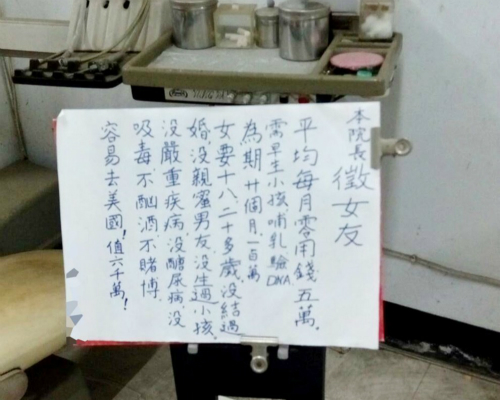 本院長 徵女友
平均每月零用錢五萬.
需早生小孩哺乳驗DNA
為期廿個月.一百萬
女要十八、二十多歲.没結過
婚.没親蜜男友.没生過小孩.
没嚴重疾病.没醣尿病.没
吸毒不酗酒不賭博.
容易去美國!值六千萬!